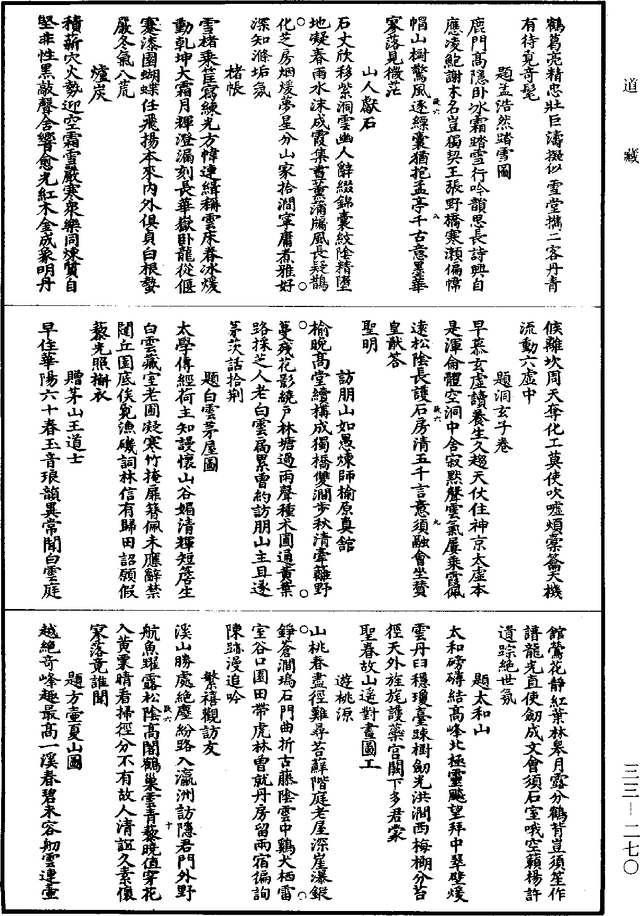 道藏
鶴葛亮精忠壯巨濤擬似雪堂攜二客丹青
有待覓奇髦
題孟浩然踏雪圖
鹿門高隱卧氷霜踏雪行吟韻思長詩興自
應凌鮑謝才名豈獨契王張野橋寒瀨偏幃
帽山樹驚風逐縹囊猶抱孟亭千古意墨華
寥落見微茫
山人獻石
石丈欣移紫洞雲幽人辭綴錦囊紋陰精墮
地凝春雨水沫成霞集晝薰蒲牖風長疑鵲
化芝房烟煖夢星分山家拾澗寧庸煮雅好
深知滌垢氛
楮帳
雪楮乘筐寫練光方幃連緝稱雲床春氷煖
動乾坤大霜月輝澄漏刻長華嶽卧龍從偃
蹇漆園蝴蝶任飛揚本來內外俱貞白根蟄
嚴冬氣八荒
爐炭
積薪穴火勢迎空霜雪嚴寒衆樂同煉質自
堅非性黑敲聲含響愈光紅木金成象明丹
候離坎周天奪化工莫使吹噓煩橐籥天機
流動六虛中
題洞玄子卷
早慕玄虛讀養生久趨天仗住神京太虛本
是渾侖體空洞中含寂默聲雲氣屢乘霞佩
遠松陰長護石房清五千言意須融會坐贊
皇猷答
聖明
訪朋山如愚煉師榆原真館
榆晚高堂續構成獨橋雙澗步秋清臺蘿野
蔓殘花影繞戶林塘過雨聲種朮圃通黃葉
路採芝人老白雲扃累曾約訪朋山主且遂
茅茨話拾荆
題白雲茅屋圖
太學傳經荷主知謾懷山谷媚清輝短簷生
白雲藏室老圃凝寒竹掩扉簪佩未應辭禁
闥丘園底俟覓漁磯詞林信有歸田詔願假
藜光照槲衣
贈茅山王道士
早住華陽六十春玉音琅韻異常聞白雲庭
館鶯花靜紅葉林皋月露分鶴背豈須笙作
譜龍光直使劒成文會須石室哦空籟楊許
遺踪絕世氛
題太和山
太和磅礴結高峰北極靈飈望拜中翠壁煖
雲丹臼穩瓊臺踈樹劒光洪澗西梅榔分苔
徑天外旌旄護蘂宮闕下多君棠
聖眷故山遙對畫圖工
遊桃源
山桃春盡徑難尋苔蘚階庭老屋深崖瀑鏦
錚蒼澗塢石門曲折古藤陰雲中鷄犬栖雷
室谷口園田帶虎林曾就丹房留兩宿偏詢
陳跡漫追吟
繁禧觀訪友
溪山勝處絕塵紛路入瀛洲訪隱君門外野
航魚躍露松陰高閣鶴巢雲青藜曉值穿花
入黃粟晴看掃徑分不有故人清誼久素懷
寥落竟誰聞
題方壺夏山圖
越絕奇峰趣最高一溪春碧未容舠雲連壺
三三—二七〇